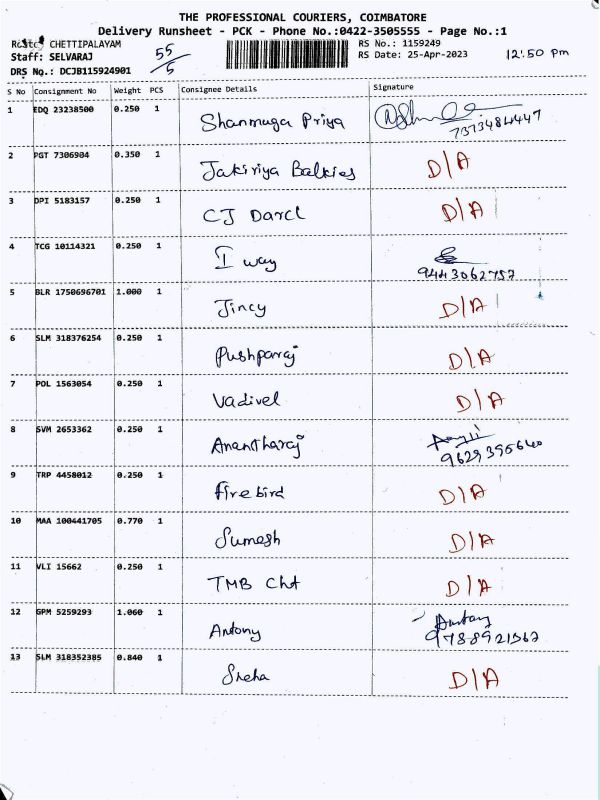 THE PROFESSIONAL COURIERS, COIMBATORE
Delivery Runsheet - PCK - Phone No.:0422-3505555 - Page No.:1
CHETTIPALAYAM RS No.: 1159249
Staff: SELVARAJ 55/5 RS Date: 25-Apr-2023 12:50 pm
DRS No.: DCJB115924901
S No Consignment No Weight PCS Consignee Details Signature
1 EDQ 23238500 0.250 1 Shanmuga Priya 7373484447
2 PGT 7306904 0.350 1 Jakiriya Balkies D/A
3 DPI 5183157 0.250 1 CJ Darcl D/A
4 TCG 10114321 0.250 1 I way 9443062757
5 BLR 1750696701 1.000 1 Jincy D/A
6 SLM 318376254 0.250 1 Pushparaj D/A
7 POL 1563054 0.250 1 Vadivel D/A
8 SVM 2653362 0.250 1 Anantharaj 9629395640
9 TRP 4458012 0.250 1 Firebird D/A
10 MAA 100441705 0.770 1 Sumesh D/A
11 VLI 15662 0.250 1 TMB Cht D/A
12 GPM 5259293 1.060 1 Antony Antony 9788921567
13 SLM 318352385 0.840 1 Sneha D/A